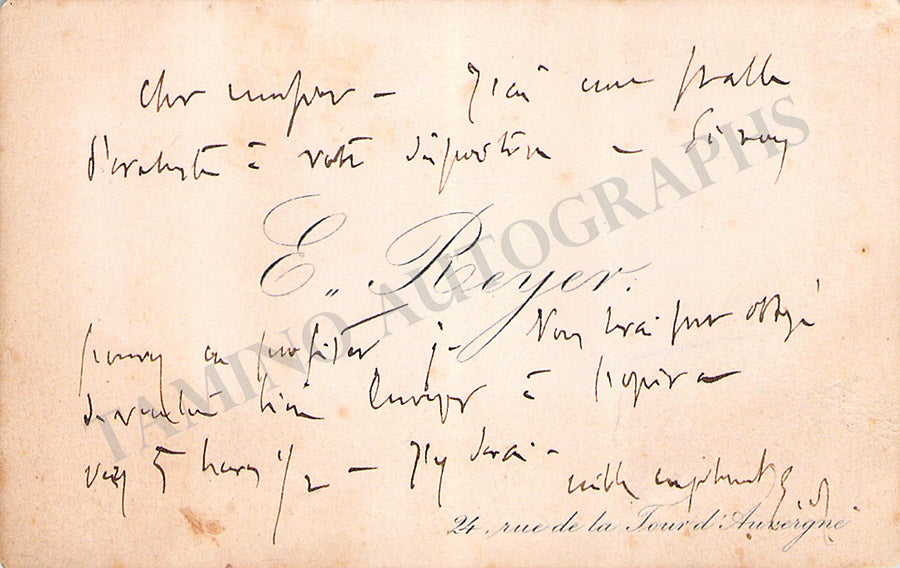 cher monsieur – J'ai une stalle
d'orchestre à votre disposition – Si vous
E. Reyer.
pouvez en profiter je vous serai fort obligé
de vouloir bien l'envoyer à l'opéra
vers 5 heures 1/2 – J'y serai –
mille compliments
24, rue de la Tour d'Auvergne
TAMINO AUTOGRAPHS